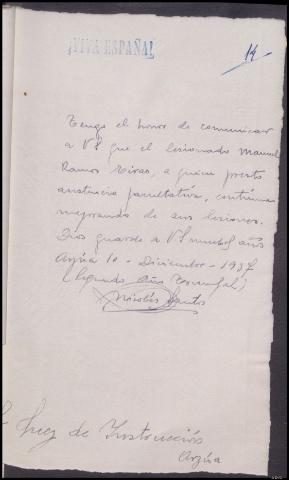 ¡VIVA ESPAÑA!
14
Tengo el honor de comunicar
a VS que el lesionado Manuel
Ramos Eiras, a quien presto
asistencia facultativa, continua
mejorando de sus lesiones.
Dios guarde a VS muchos años
Arzúa 10 - Diciembre - 1937
(Segundo Año Triunfal)
Nicolás Santos
Juez de Instrucción
Arzúa